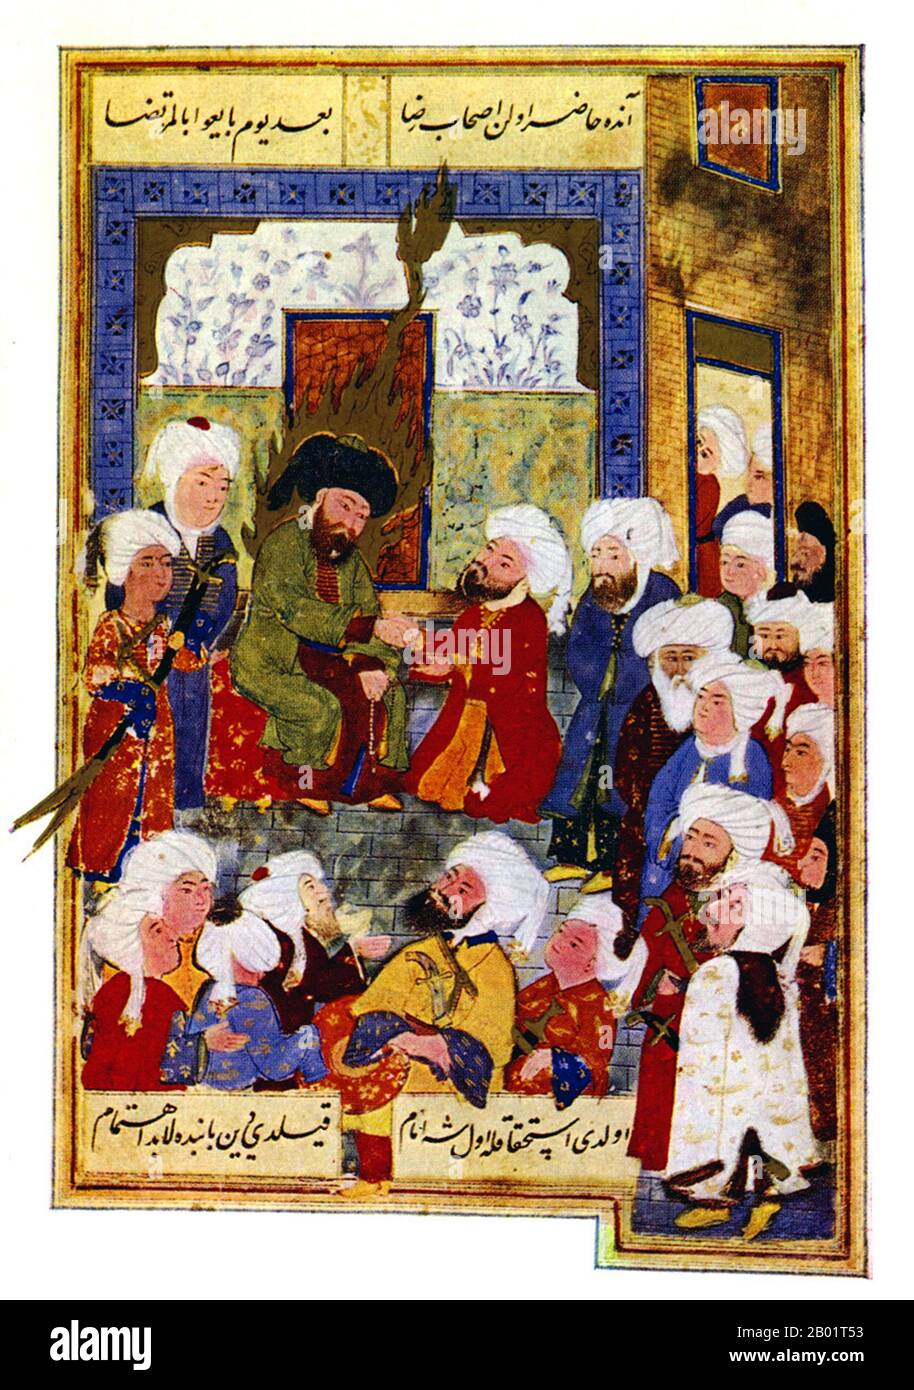 آنده حاضر اولن اصحاب رضا
بعد یوم بایعوا بالمرتضا
اولدی استحقاقله اول شه امام
قیلدی دین بابنده لابد اهتمام
alamy
Image ID: 2B01T53
www.alamy.com